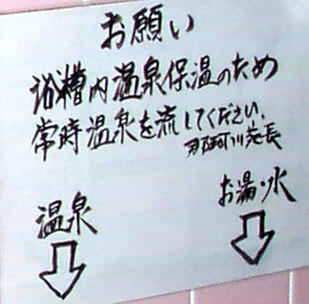 お願い
浴槽内温泉保温のため
常時温泉を流してください.
那珂川苑長
温泉
お湯・水